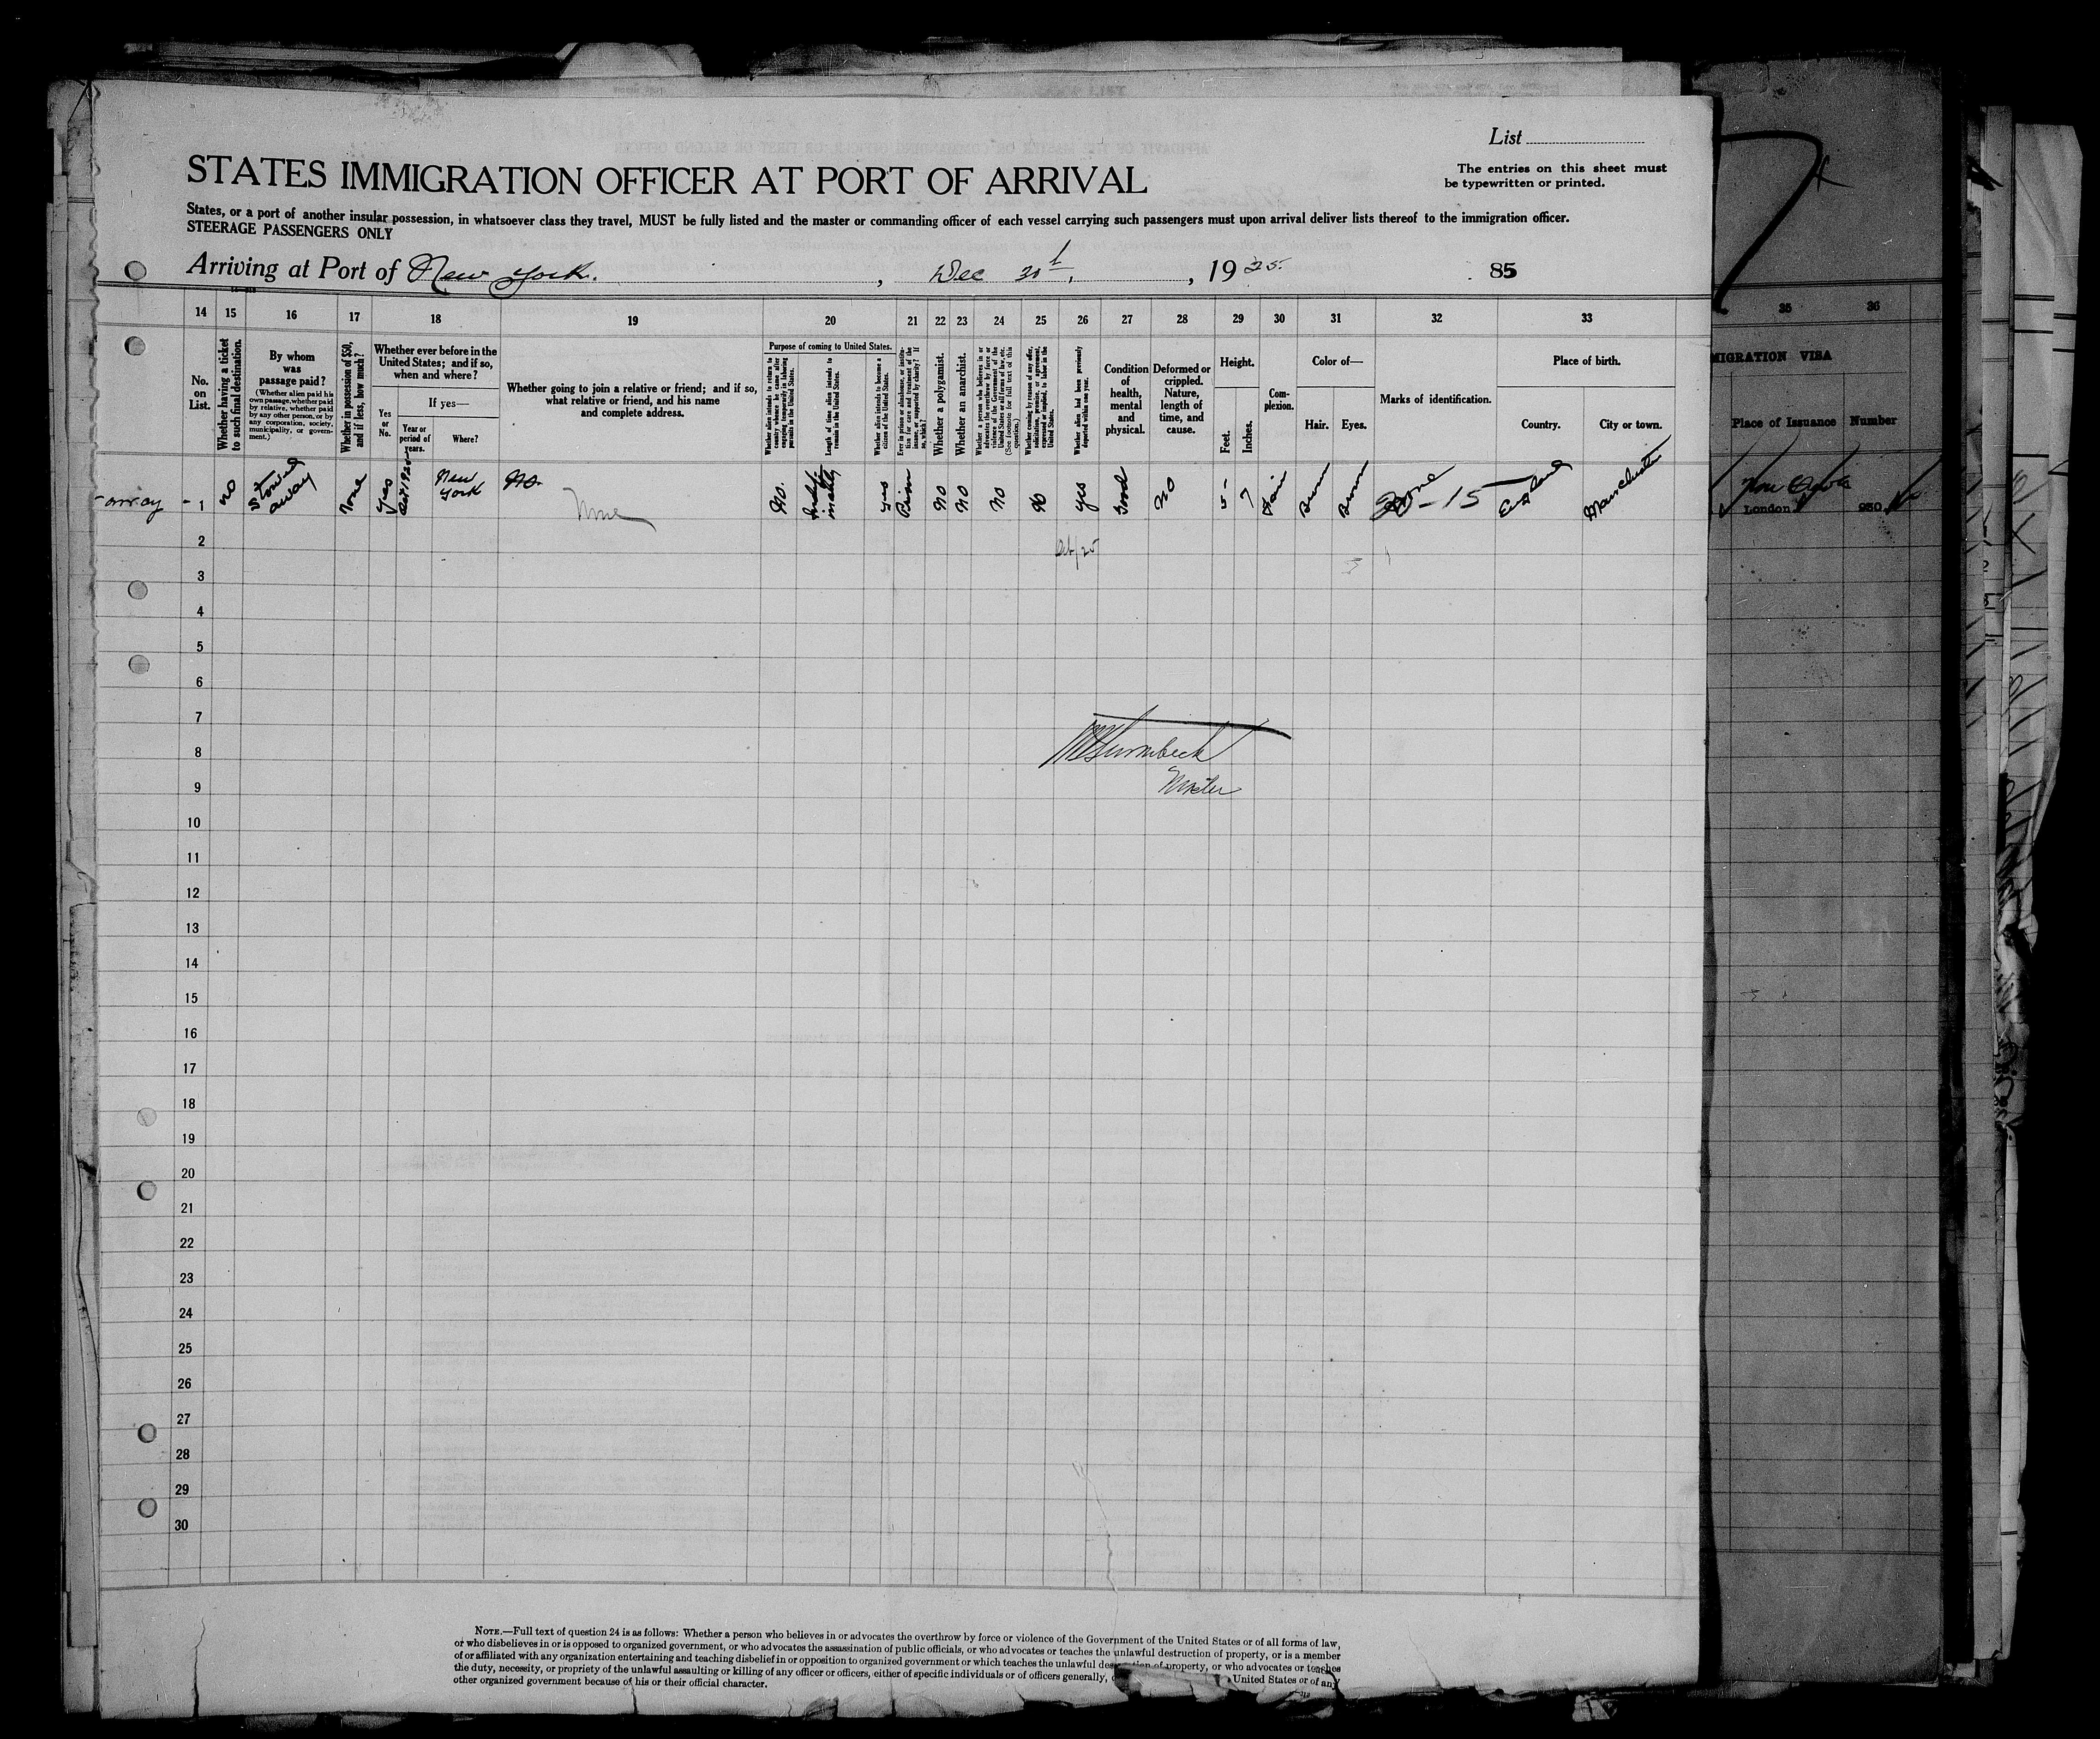 List
The entries on this sheet must
be typewritten or printed.
STATES IMMIGRATION OFFICER AT PORT OF ARRIVAL
States, or a port of another insular possession, in whatsoever class they travel, MUST be fully listed and the master or commanding officer of each vessel carrying such passengers must upon arrival deliver lists thereof to the immigration officer.
STEERAGE PASSENGERS ONLY
Arriving at Port of New York. , Dec , 1925. 85
14 15 16 17 18 19 20 21 22 23 24 25 26 27 28 29 30 31 32 33 35 36
No.
on
List.
Whether having a ticket
to such final destination.
By whom
was
passage paid?
(Whether alien paid his
own passage, whether paid
by relative, whether paid
by any other person, or by
any corporation, society,
municipality, or govern-
ment.)
Whether in possession of $50,
and if less, how much?
Whether ever before in the
United States; and if so,
when and where?
Yes
or
No.
If yes—
Year or
period of
years.
Where?
Whether going to join a relative or friend; and if so,
what relative or friend, and his name
and complete address.
Purpose of coming to United States.
Whether alien intends to return to
country whence he came after
engaging temporarily in laboring
pursuits in the United States.
Length of time alien intends to
remain in the United States.
Whether alien intends to become a
citizen of the United States.
Ever in prison or almshouse, or institu-
tion for care and treatment of the
insane, or supported by charity? If
so, which?
Whether a polygamist.
Whether an anarchist.
Whether a person who believes in or
advocates the overthrow by force or
violence of the Government of the
United States or all forms of law, etc.
(See footnote for full text of this
question.)
Whether coming by reason of any offer,
solicitation, promise, or agreement,
expressed or implied, to labor in the
United States.
Whether alien had been previously
deported within one year.
Condition
of
health,
mental
and
physical.
Deformed or
crippled.
Nature,
length of
time, and
cause.
Height.
Feet.
Inches.
Com-
plexion.
Color of—
Hair.
Eyes.
Marks of identification.
Place of birth.
Country.
City or town.
MIGRATION VISA
Place of Issuance
Number
1 no Stowed away None Yes Oct 1925 New York No. None No. Indefinitely yes Prison No No No No yes Good No 5 7 Fair None - 15 England Manchester
London 930
2 Oct/25
3
4
5
6
7
8
9
Master
10
11
12
13
14
15
16
17
18
19
20
21
22
23
24
25
26
27
28
29
30
NOTE.—Full text of question 24 is as follows: Whether a person who believes in or advocates the overthrow by force or violence of the Government of the United States or of all forms of law,
or who disbelieves in or is opposed to organized government, or who advocates the assassination of public officials, or who advocates or teaches the unlawful destruction of property, or is a member
of or affiliated with any organization entertaining and teaching disbelief in or opposition to organized government or which teaches the unlawful destruction of property, or who advocates or teaches
the duty, necessity, or propriety of the unlawful assaulting or killing of any officer or officers, either of specific individuals or of officers generally, United States or of any
other organized government because of his or their official character.